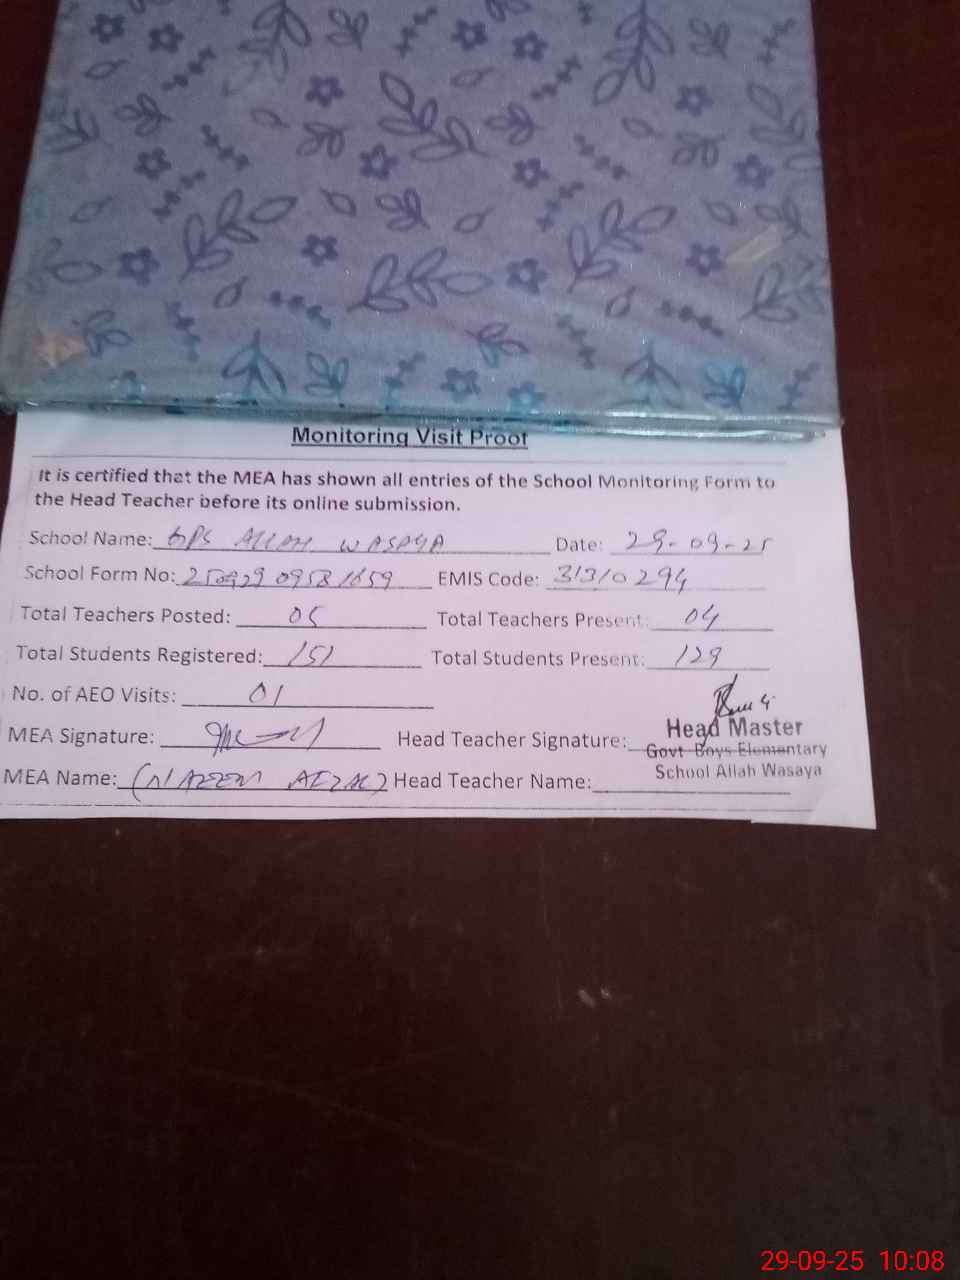 Monitoring Visit Proof
It is certified that the MEA has shown all entries of the School Monitoring Form to
the Head Teacher before its online submission.
School Name: GPS ALLAH WASAYA Date: 29-09-25
School Form No: EMIS Code: 31310294
Total Teachers Posted: 05 Total Teachers Present: 04
Total Students Registered: 151 Total Students Present: 129
No. of AEO Visits: 01
MEA Signature: Head Teacher Signature:
Head Master
Govt Boys Elementary
School Allah Wasaya
MEA Name: Head Teacher Name:
29-09-25 10:08